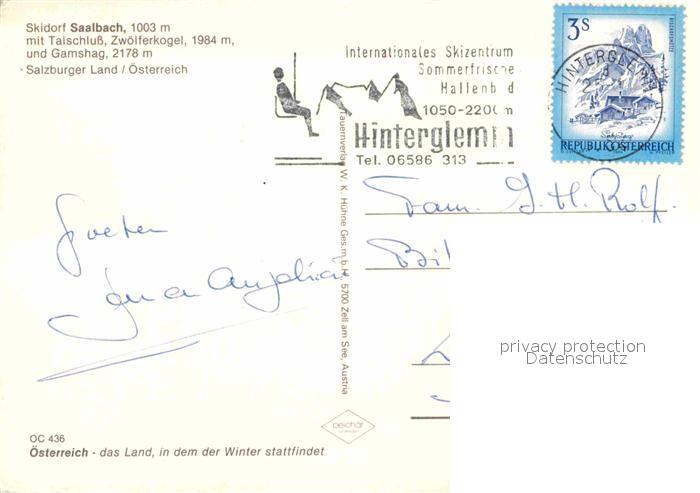 Skidorf Saalbach, 1003 m
mit Talschluß, Zwölferkogel, 1984 m,
und Gamshag, 2178 m
Salzburger Land / Österreich
Internationales Skizentrum
Sommerfrische
Hallenb d
1050-2200m
Hinterglemm
Tel. 06586 313
3 S
HINTERGLEMM
REPUBLIK ÖSTERREICH
Fam. G. H. Rolf.
Groeten
Tauernverlag W. K. Hühne Ges.m.b.H., 5700 Zell am See, Austria
privacy protection
Datenschutz
OC 436
Österreich - das Land, in dem der Winter stattfindet